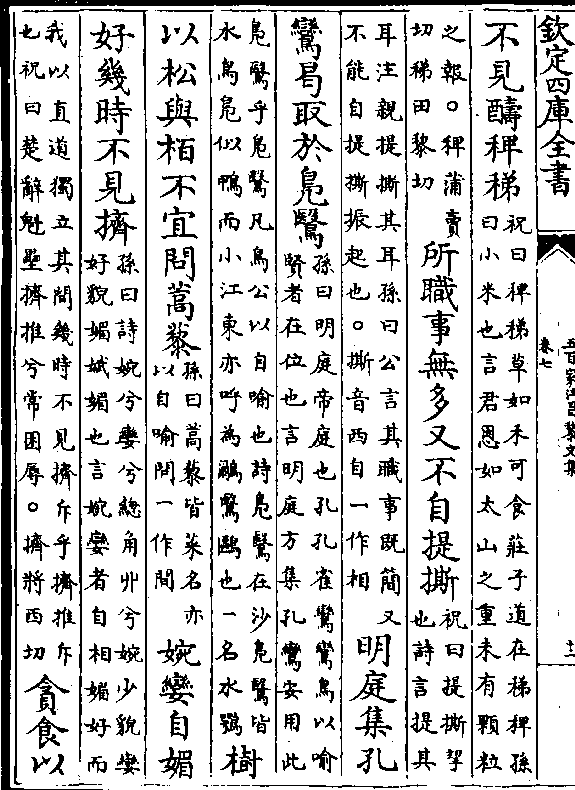 欽定四庫全書
卷七
不見醻稗稊
祝曰稗稊草如禾可食莊子道在稊稗孫
曰小米也言君恩如太山之重未有顆粒
之報○稗蒲賣
切稊田黎切
所職事無多又不自提撕
祝曰提撕挈
也詩言提其
耳注親提撕其耳孫曰公言其職事既簡又
不能自提撕振起也○撕音西自一作相
明庭集孔
鸞曷取於鳬鷖
孫曰明庭帝庭也孔孔雀鸞鸞鳥以喻
賢者在位也言明庭方集孔鸞安用此
鳬鷖乎鳬鷖凡鳥公以自喻也詩鳬鷖在沙鳬鷖皆
水鳥鳬似鴨而小江東亦呼為鸍鷖鷗也一名水鴞
樹
以松與栢不宜問蒿藜
孫曰蒿藜皆菜名亦
以自喻問一作間
婉孌自媚
好幾時不見擠
孫曰詩婉兮孌兮緫角丱兮婉少貌孌
好貌媚娬媚也言婉孌者自相媚好而
我以直道獨立其間幾時不見擠斥乎擠推斥
也祝曰楚辭魁壘擠推兮常困辱○擠將西切
貪食以